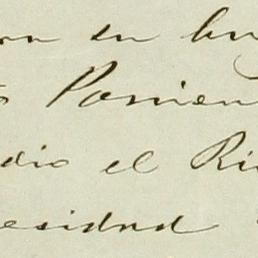 en bu
Ponien
dio el Ri
esidad